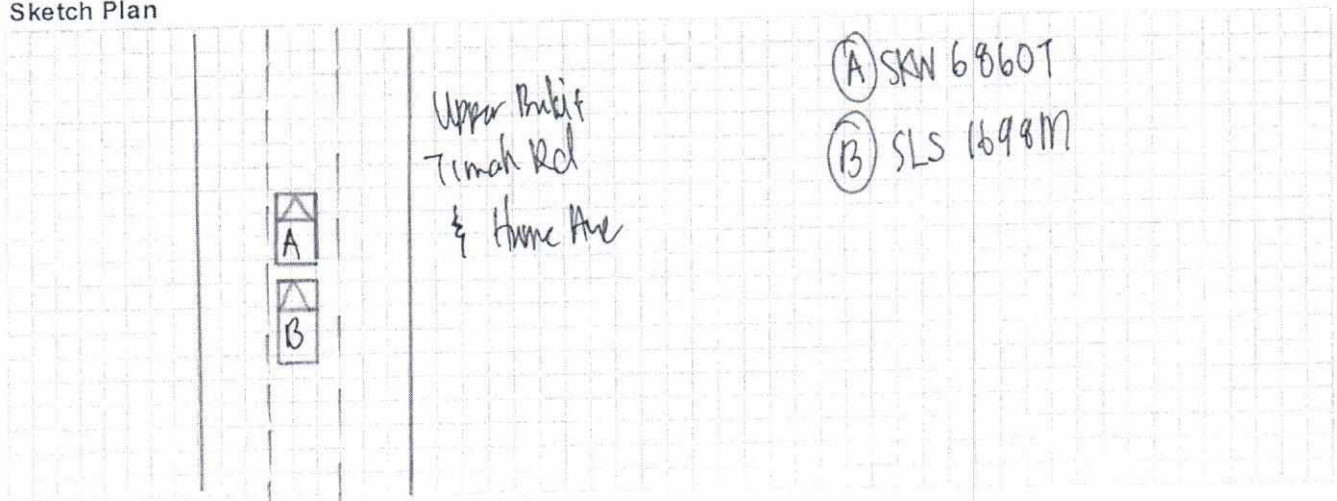 Sketch Plan
Upper Bukit
Timah Rd
& Hume Ave
A
B
(A) SKW 6860T
(B) SLS 1698M